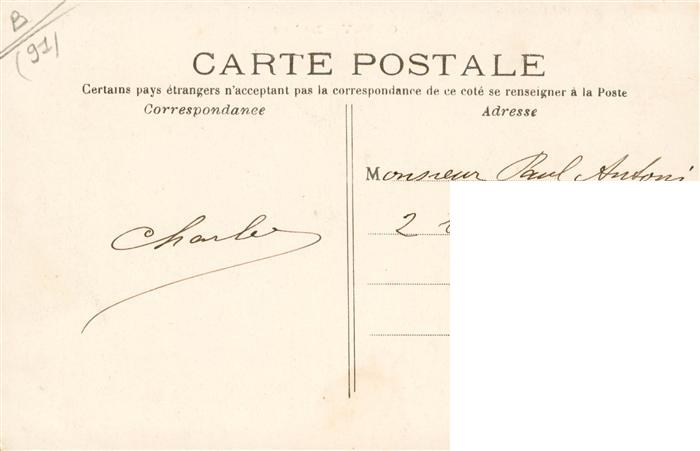 B
(91)
CARTE POSTALE
Certains pays étrangers n'acceptant pas la correspondance de ce coté se renseigner à la Poste
Correspondance
Adresse
Monsieur Paul Antoni
Charles
2